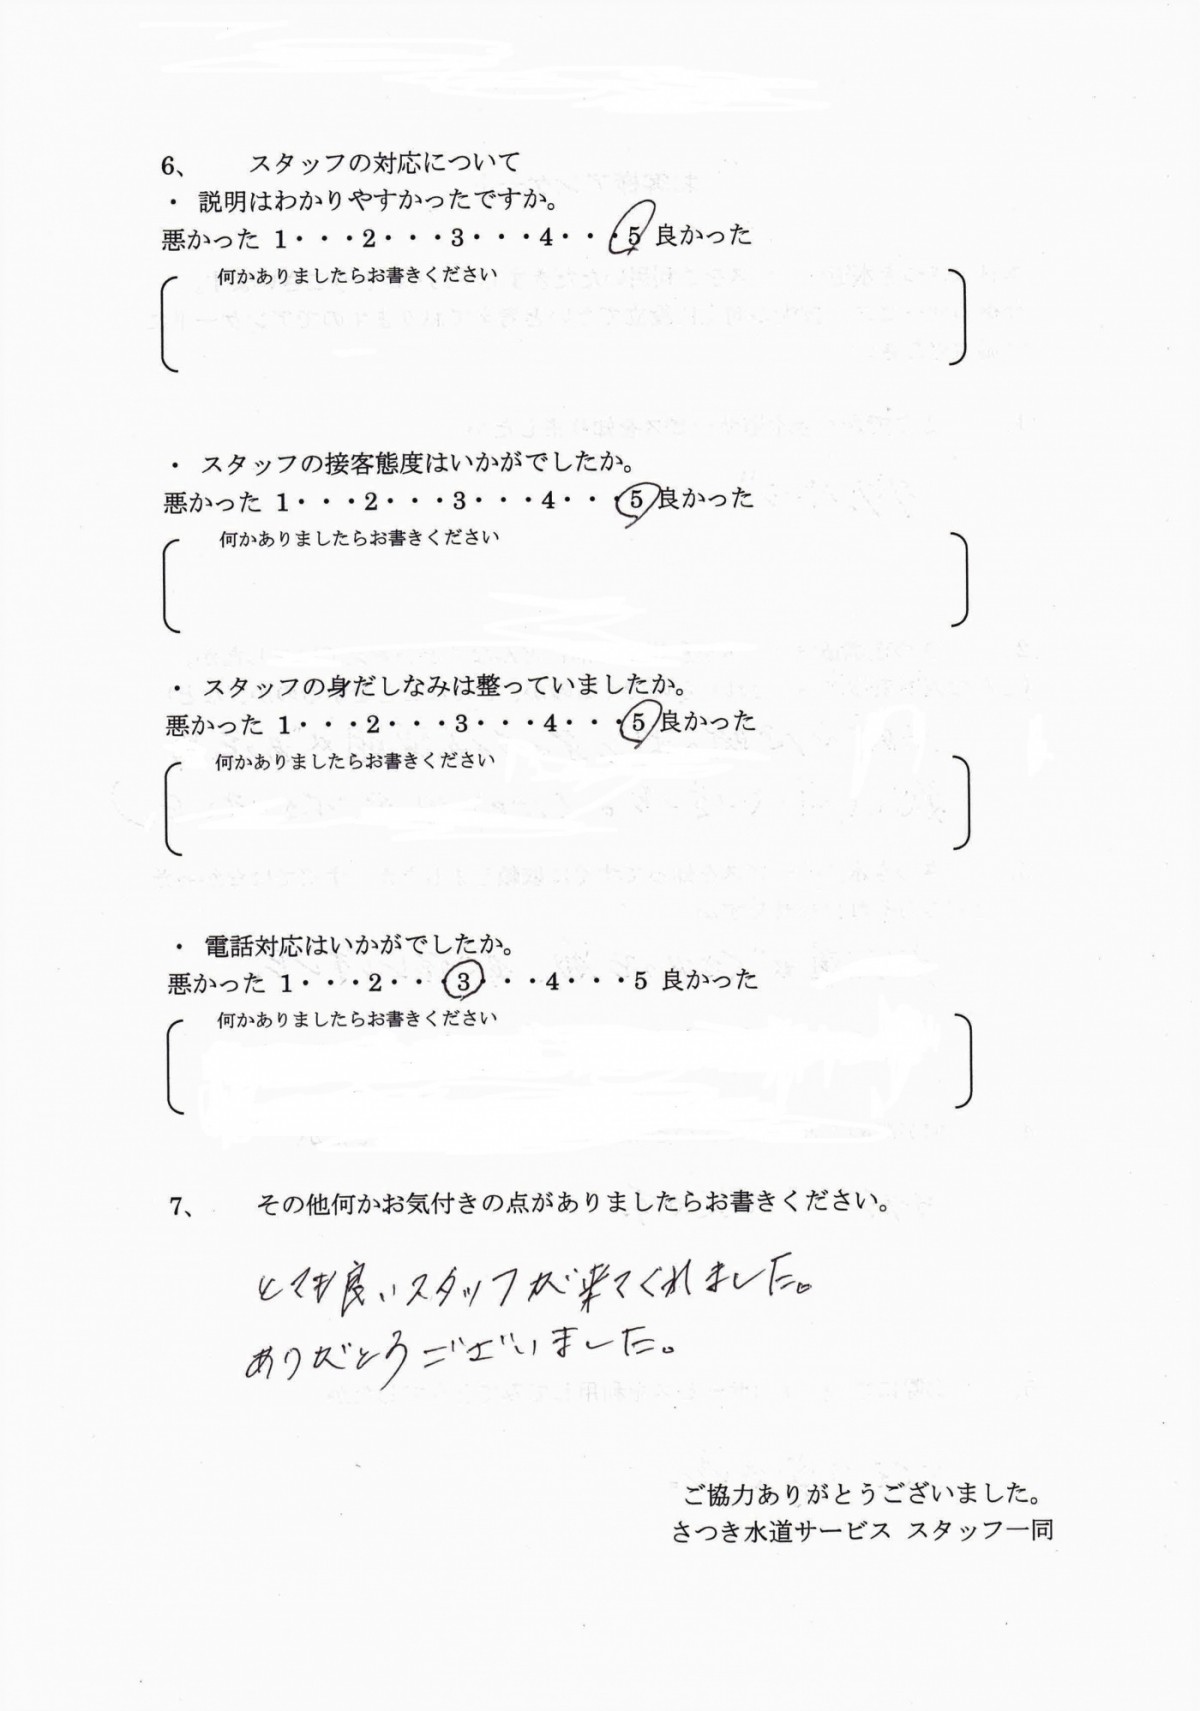 6、 スタッフの対応について
・ 説明はわかりやすかったですか。
悪かった 1・・・2・・・3・・・4・・・5 良かった
何かありましたらお書きください
・ スタッフの接客態度はいかがでしたか。
悪かった 1・・・2・・・3・・・4・・・5 良かった
何かありましたらお書きください
・ スタッフの身だしなみは整っていましたか。
悪かった 1・・・2・・・3・・・4・・・5 良かった
何かありましたらお書きください
・ 電話対応はいかがでしたか。
悪かった 1・・・2・・・3・・・4・・・5 良かった
何かありましたらお書きください
7、 その他何かお気付きの点がありましたらお書きください。
とても良いスタッフが来てくれました。
ありがとうございました。
ご協力ありがとうございました。
さつき水道サービス スタッフ一同